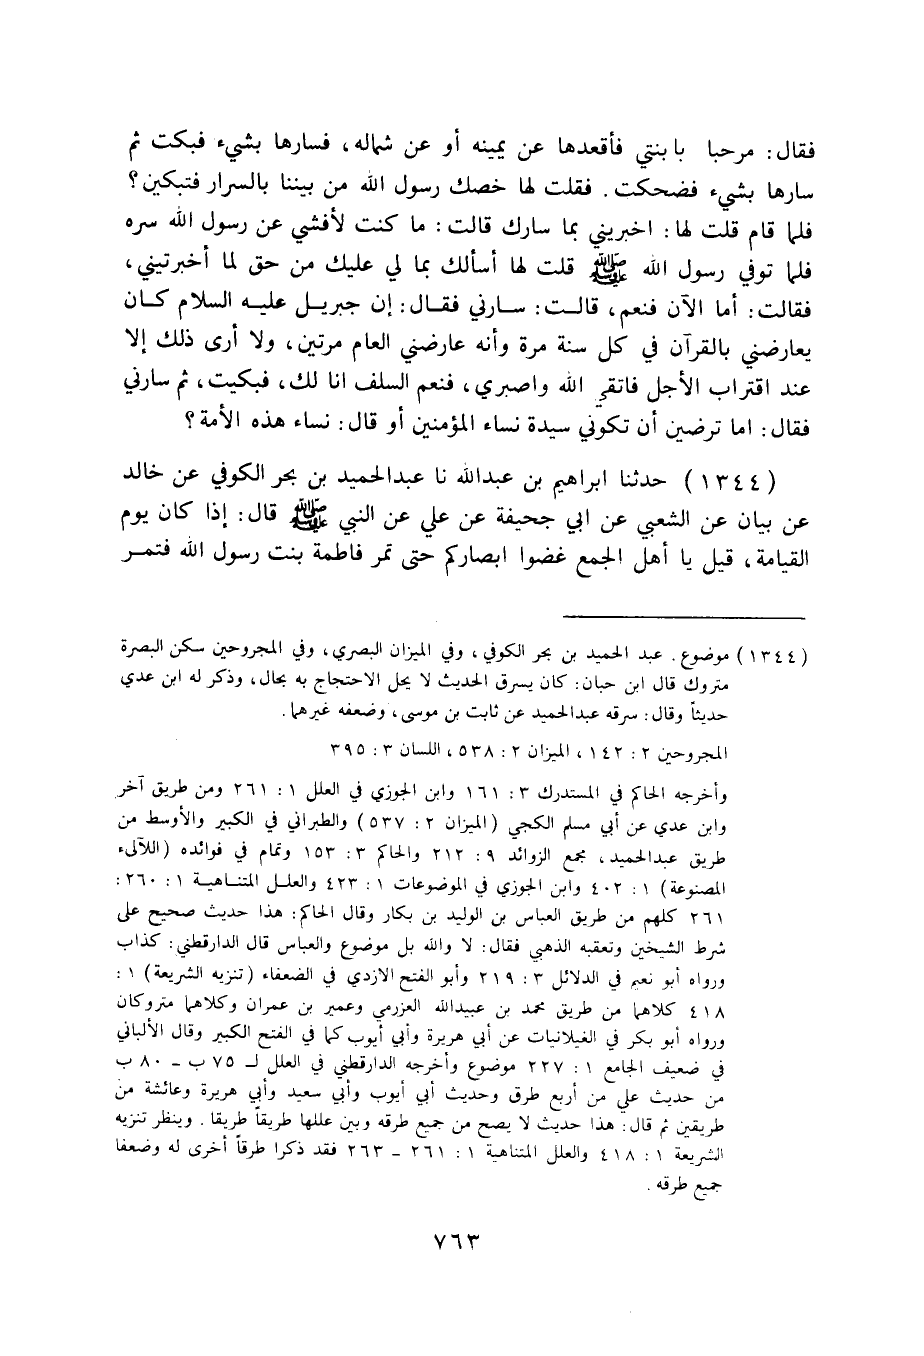 فقال: مرحبا بابنتي فأقعدها عن يمينه أو عن شماله، فسارها بشيء فبكت ثم
سارها بشيء فضحكت. فقلت لها خصك رسول الله من بيننا بالسرار فتبكين؟
فلما قام قلت لها: اخبريني بما سارك قالت: ما كنت لأفشي عن رسول الله سره
فلما توفي رسول الله ﷺ قلت لها أسألك بما لي عليك من حق لما أخبرتيني،
فقالت: أما الآن فنعم، قالت: سارني فقال: إن جبريل عليه السلام كان
يعارضني بالقرآن في كل سنة مرة وأنه عارضني العام مرتين، ولا أرى ذلك إلا
عند اقتراب الأجل فاتقي الله واصبري، فنعم السلف انا لك، فبكيت، ثم سارني
فقال: اما ترضين أن تكوني سيدة نساء المؤمنين أو قال: نساء هذه الأمة؟
(١٣٤٤) حدثنا ابراهيم بن عبدالله نا عبدالحميد بن بحر الكوفي عن خالد
عن بيان عن الشعبي عن ابي جحيفة عن علي عن النبي ﷺ قال: إذا كان يوم
القيامة، قيل يا أهل الجمع غضوا ابصاركم حتى تمر فاطمة بنت رسول الله فتمر
(١٣٤٤) موضوع. عبد الحميد بن بحر الكوفي، وفي الميزان البصري، وفي المجروحين سكن البصرة
متروك قال ابن حبان: كان يسرق الحديث لا يحل الاحتجاج به بحال، وذكر له ابن عدي
حديثاً وقال: سرقه عبدالحميد عن ثابت بن موسى، وضعفه غيرهما.
المجروحين ٢: ١٤٢، الميزان ٢: ٥٣٨، اللسان ٣: ٣٩٥
وأخرجه الحاكم في المستدرك ٣: ١٦١ وابن الجوزي في العلل ١: ٢٦١ ومن طريق آخر
وابن عدي عن أبي مسلم الكجي (الميزان ٢: ٥٣٧) والطبراني في الكبير والأوسط من
طريق عبدالحميد، مجمع الزوائد ٩: ٢١٢ والحاكم ٣: ١٥٣ وتمام في فوائده (اللآلىء
المصنوعة) ١: ٤٠٢ وابن الجوزي في الموضوعات ١: ٤٢٣ والعلل المتناهية ١: ٢٦٠:
٢٦١ كلهم من طريق العباس بن الوليد بن بكار وقال الحاكم: هذا حديث صحيح على
شرط الشيخين وتعقبه الذهبي فقال: لا والله بل موضوع والعباس قال الدارقطني: كذاب
ورواه أبو نعيم في الدلائل ٣: ٢١٩ وأبو الفتح الازدي في الضعفاء (تنزيه الشريعة) ١:
٤١٨ كلاهما من طريق محمد بن عبيدالله العزرمي وعمير بن عمران وكلاهما متروكان
ورواه أبو بكر في الغيلانيات عن أبي هريرة وأبي أيوب كما في الفتح الكبير وقال الألباني
في ضعيف الجامع ١: ٢٢٧ موضوع وأخرجه الدارقطني في العلل لـ ٧٥ ب - ٨٠ ب
من حديث علي من أربع طرق وحديث أبي أيوب وأبي سعيد وأبي هريرة وعائشة من
طريقين ثم قال: هذا حديث لا يصح من جميع طرقه وبين عللها طريقاً طريقا. وينظر تنزيه
الشريعة ١: ٤١٨ والعلل المتناهية ١: ٢٦١ - ٢٦٣ فقد ذكرا طرقاً أخرى له وضعفا
جميع طرقه.
٧٦٣